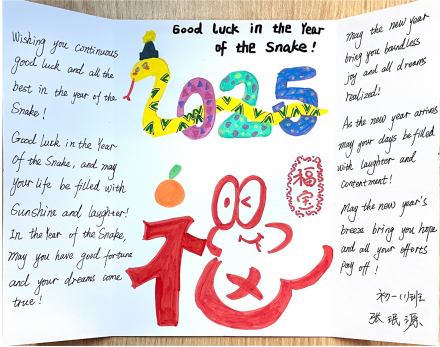 Good luck in the Year
of the Snake!
Wishing you continuous
good luck and all the
best in the year of the
Snake!
Good luck in the Year
Of the Snake, and may
your life be filled with
Sunshine and laughter!
In the Year of the Snake,
May you have good fortune
and your dreams come
true!
2025
福
宝
福
May the new year
bring you boundless
joy and all dreams
realized!
As the new year arrives
may your days be filled
with laughter and
contentment!
May the new year's
breeze bring you hope
and all your efforts
pay off!
初一11班
张珉源